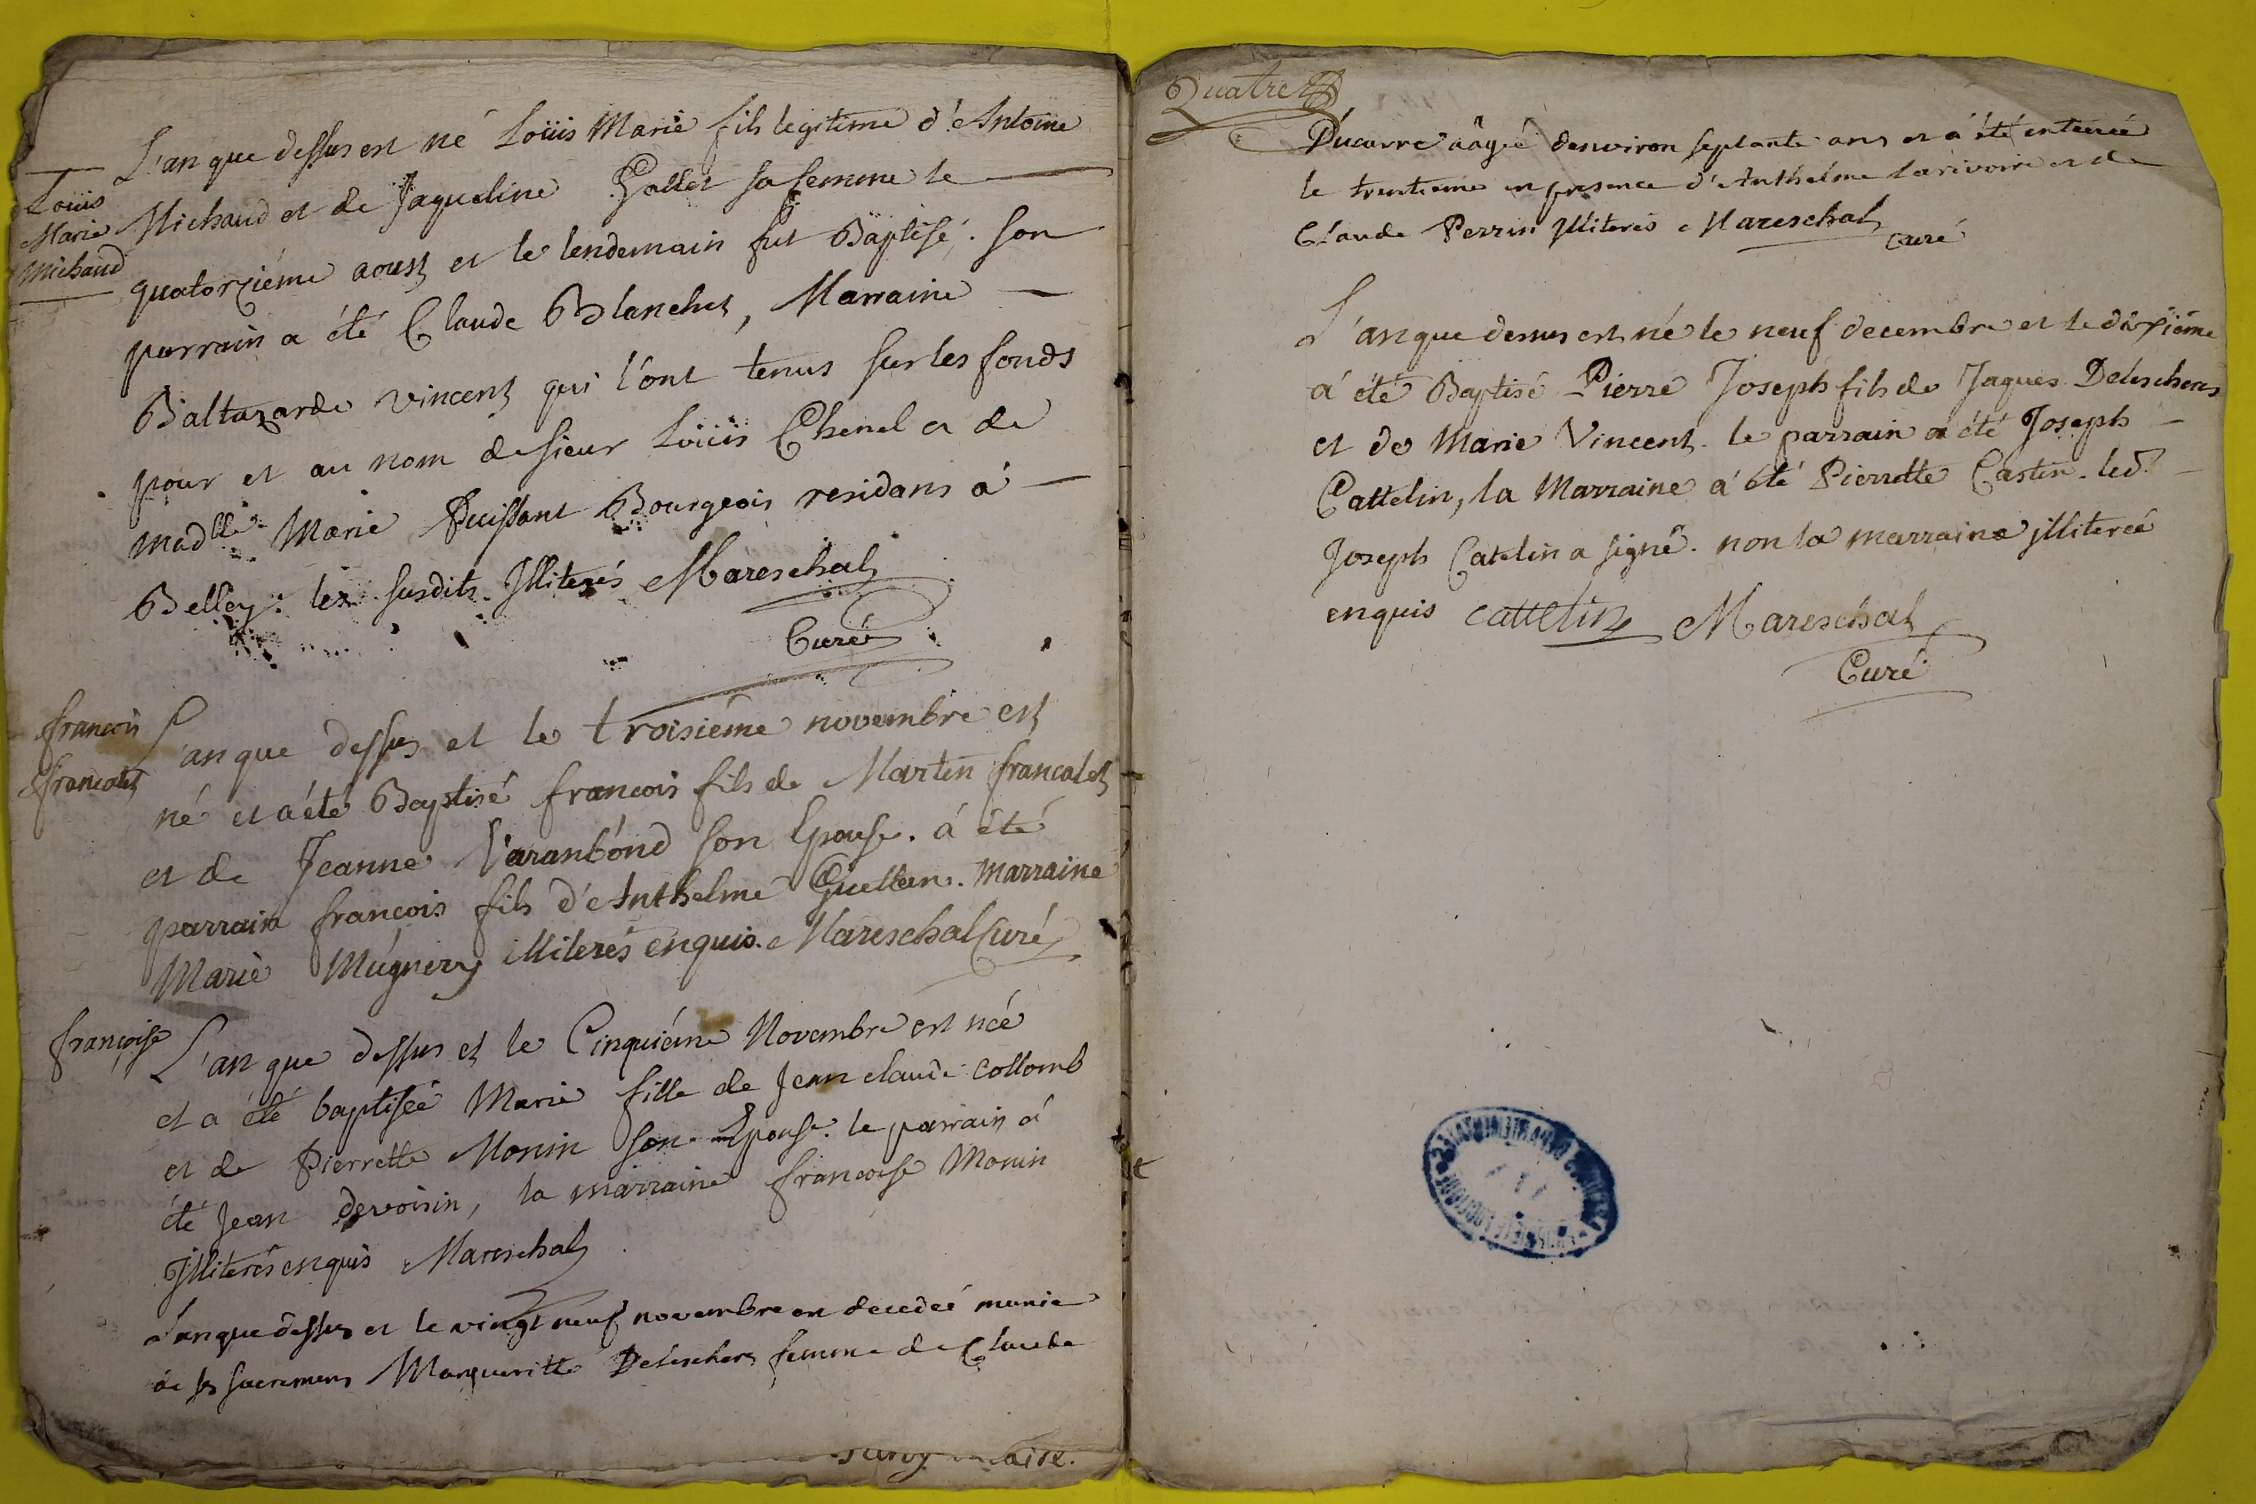 Louis
Marie
Michaud
L'an que dessus est né Loüis Marie fils legitime d'Antoine
Michaud et de Jaqueline Gallet sa femme le
quatorzième aoust et le lendemain fut Baptisé. son
parrain a été Claude Blanchet, Marraine
Baltazarde Vincent qui l'ont tenus sur les fonds
pour et au nom de sieur Loüis Chenel et de
madlle Marie Puissant Bourgeois residans á
Belley: les susdits Illiterés Mareschal
Curé
francois
francalet
L'an que dessus et le troisième novembre est
né et a été Baptisé francois fils de Martin francalet
et de Jeanne Varanbond son Epouse. á été
parrain françois fils d'Anthelme. Marraine
Marie Mugnery illiterés enquis. Mareschal Curé
françoise
L'an que dessus et le Cinquième Novembre est née
et a été baptisée Marie fille de Jean claude Collomb
et de Pierrette Monin son Epouse. le parrain á
été Jean devoisin, la marraine francoise Monin
Illiterés enquis Mareschal
L'an que dessus et le vingt neuf novembre est decedée munie
de ses sacremens Margueritte Deleschers femme de Claude
Quatre
Ducurre aâgée denviron septante ans et á été enterrée
le trentieme en presence d'Anthelme Larivoire et de
Claude Perrin Illiterés Mareschal
curé
L'an que dessus est né le neuf decembre et le dixième
á été Baptisé Pierre Joseph fils de Jaques Deleschers
et de Marie Vincent. le parrain a été Joseph
Cattelin, la Marraine á été Pierrette Castin. led.
Joseph Catelin a signé. non la marraine illiterée
enquis Cattelin Mareschal
Curé